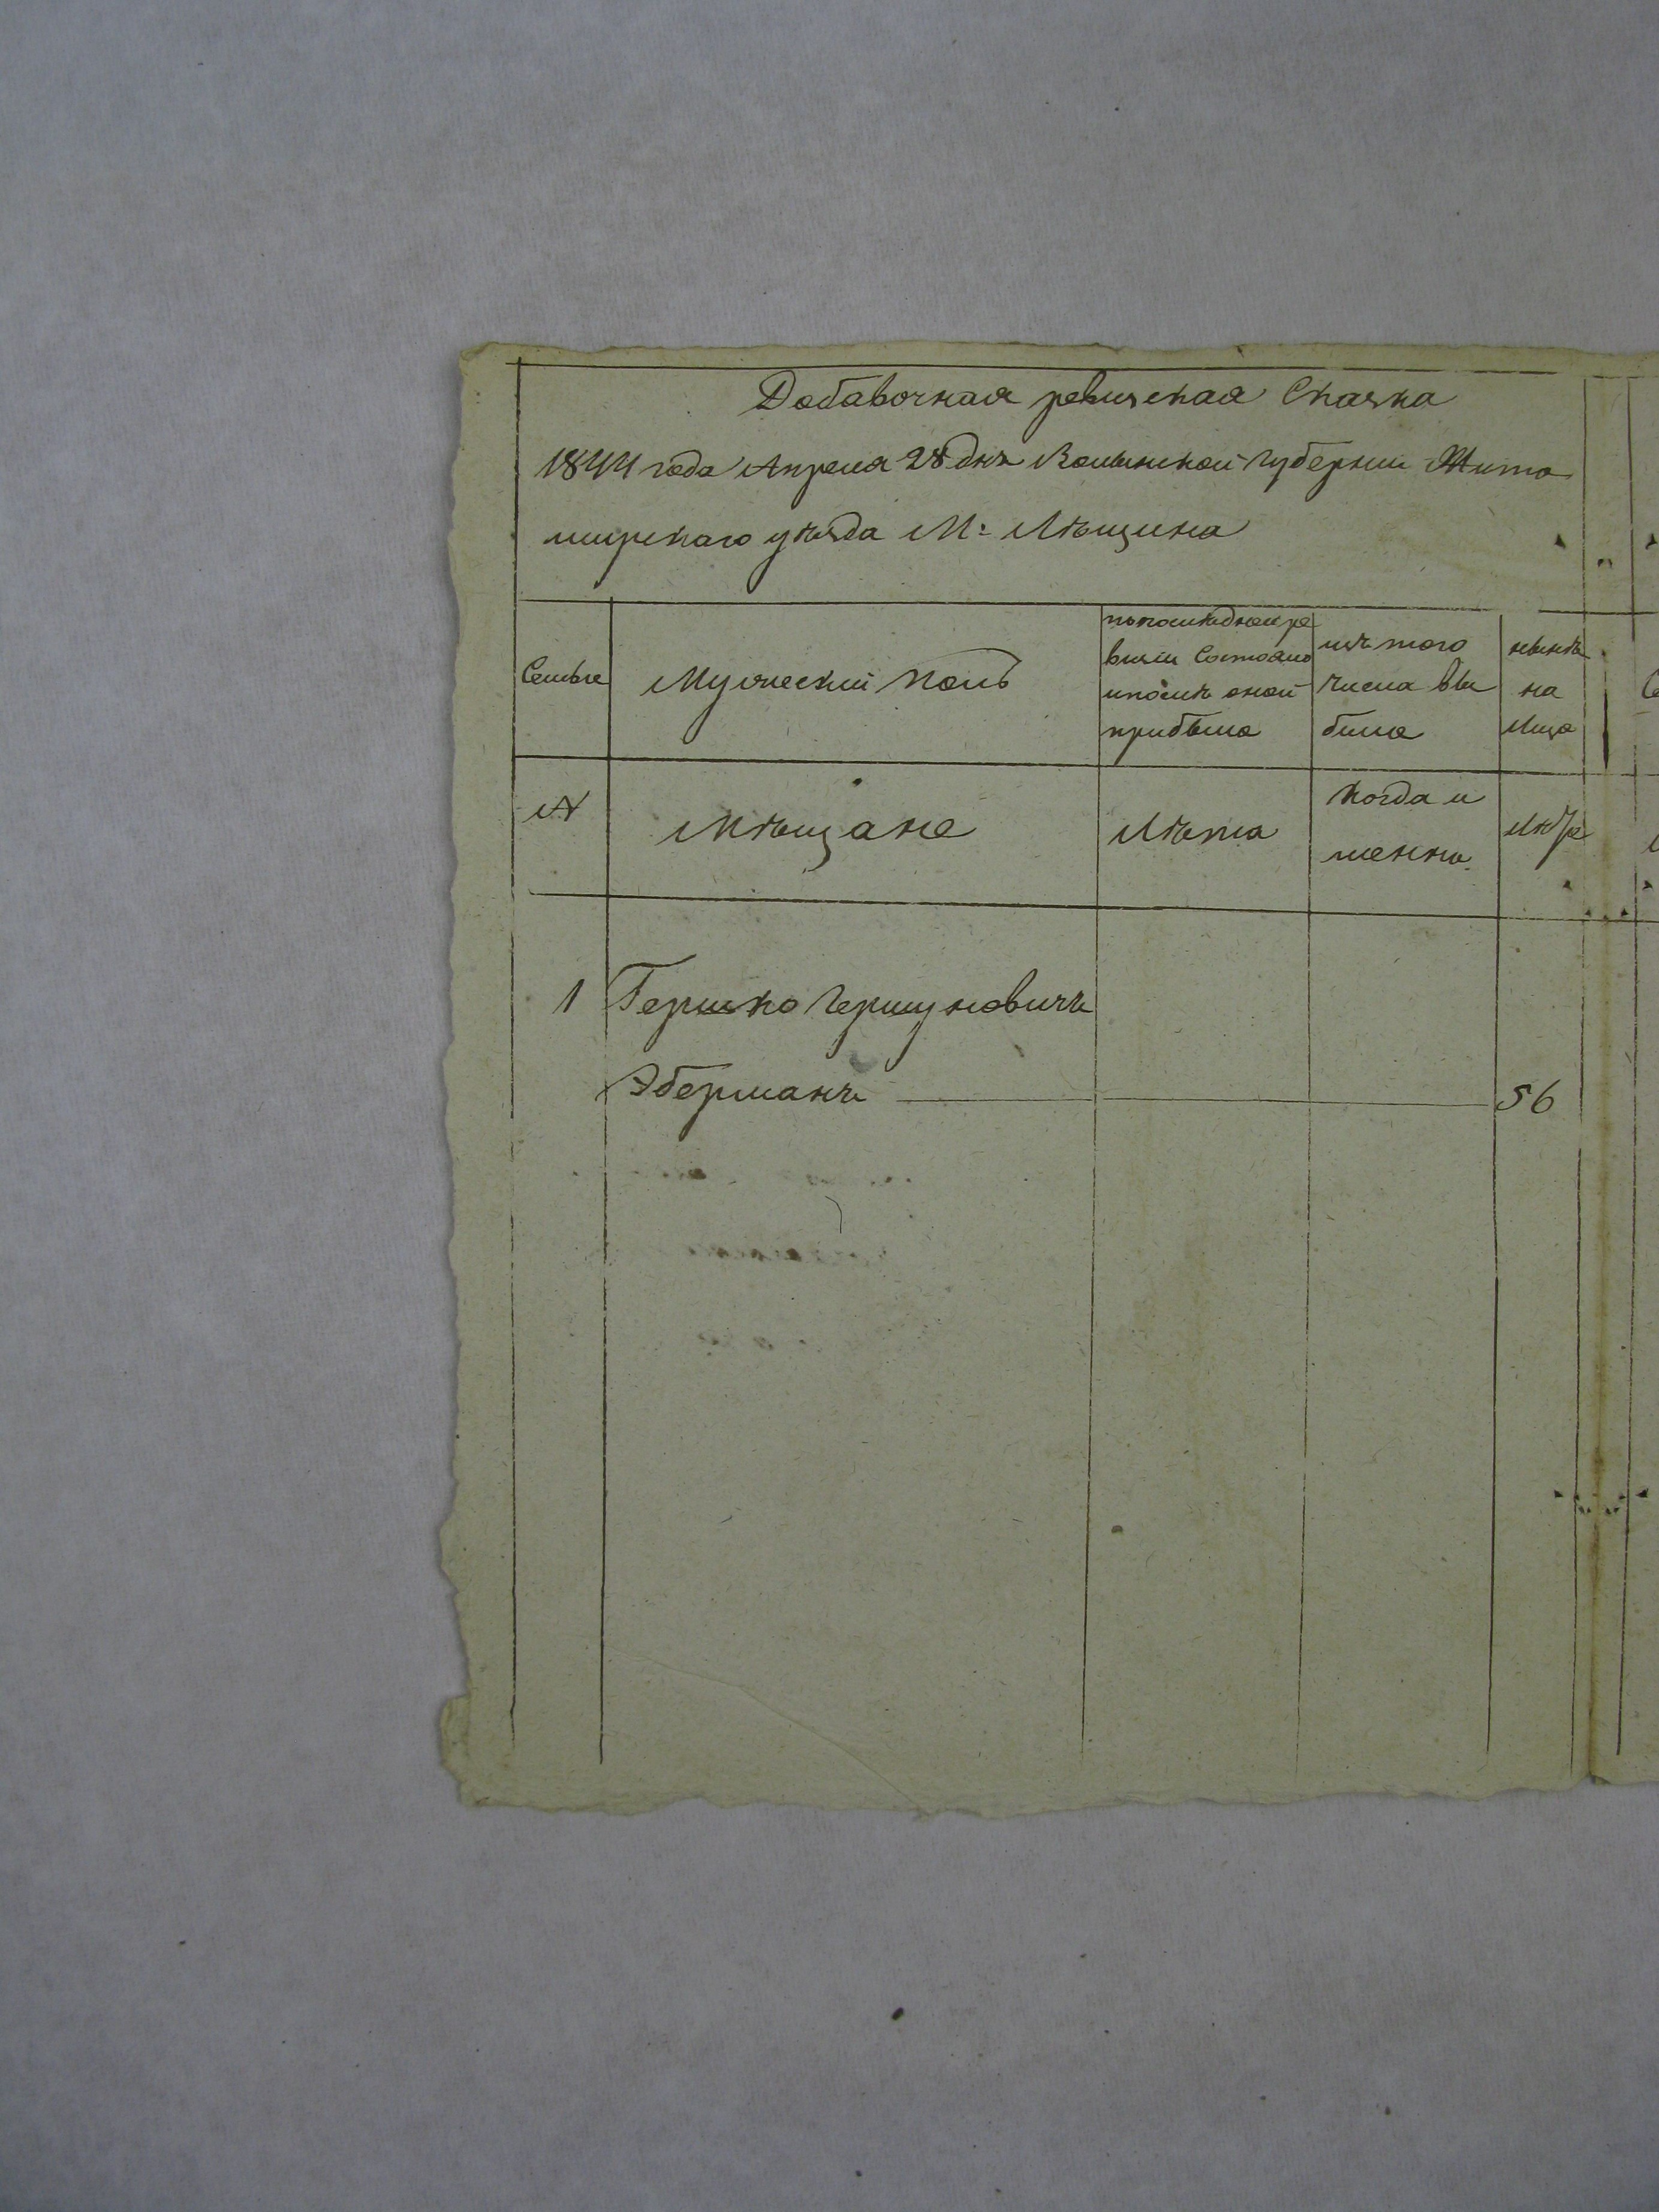 Добавочная ревизская Сказка
1844 года Апреля 28 дня Волынской губернии Жито
мирскаго уѣзда М: Лѣщина
Семьи
Мужеский полъ
по последней ре
визіи состояло
и послѣ оной
прибыло
изъ того
числа вы
было
нынѣ
на
лицо
№
Мѣщане
Лѣта
когда и
менно
Лѣта
1 Гершко Гершуновичъ
Эберманъ 56